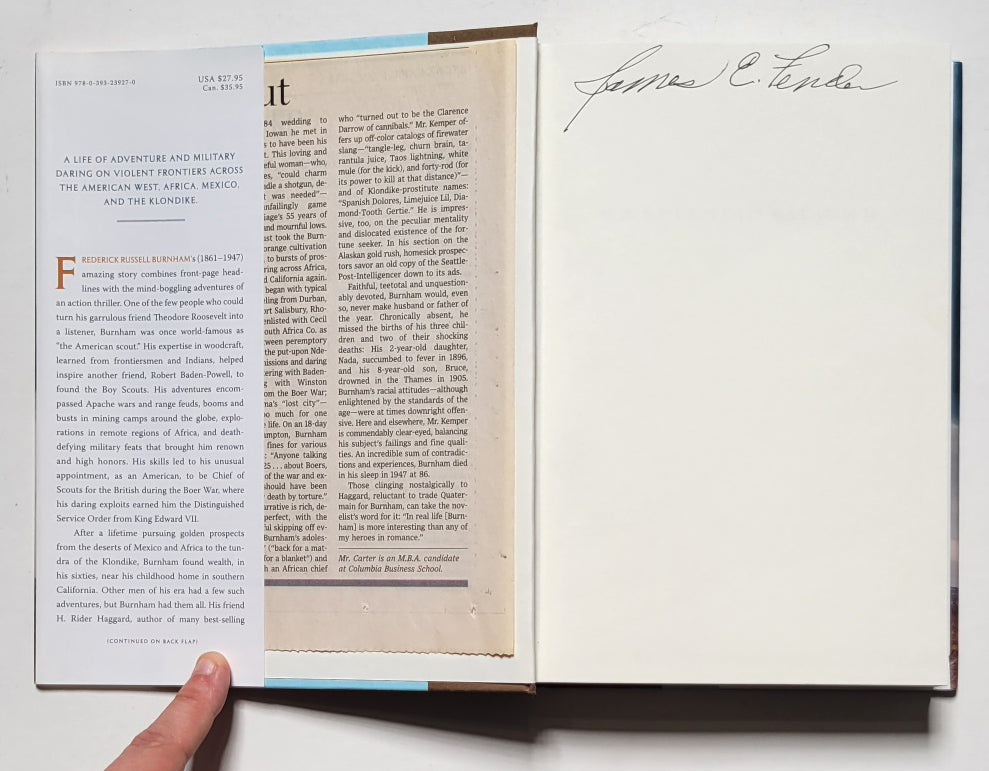 ISBN 978-0-393-23927-0
USA $27.95
Can. $35.95
A LIFE OF ADVENTURE AND MILITARY
DARING ON VIOLENT FRONTIERS ACROSS
THE AMERICAN WEST, AFRICA, MEXICO,
AND THE KLONDIKE.
FREDERICK RUSSELL BURNHAM's (1861–1947)
amazing story combines front-page head-
lines with the mind-boggling adventures of
an action thriller. One of the few people who could
turn his garrulous friend Theodore Roosevelt into
a listener, Burnham was once world-famous as
"the American scout." His expertise in woodcraft,
learned from frontiersmen and Indians, helped
inspire another friend, Robert Baden-Powell, to
found the Boy Scouts. His adventures encom-
passed Apache wars and range feuds, booms and
busts in mining camps around the globe, explo-
rations in remote regions of Africa, and death-
defying military feats that brought him renown
and high honors. His skills led to his unusual
appointment, as an American, to be Chief of
Scouts for the British during the Boer War, where
his daring exploits earned him the Distinguished
Service Order from King Edward VII.
After a lifetime pursuing golden prospects
from the deserts of Mexico and Africa to the tun-
dra of the Klondike, Burnham found wealth, in
his sixties, near his childhood home in southern
California. Other men of his era had a few such
adventures, but Burnham had them all. His friend
H. Rider Haggard, author of many best-selling
(CONTINUED ON BACK FLAP)
ut
84 wedding to
Iowan he met in
s to have been his
t. This loving and
eful woman—who,
es, "could charm
ndle a shotgun, de-
t was needed"—
unfailingly game
iage's 55 years of
and mournful lows.
ust took the Burn-
orange cultivation
to bursts of pros-
ring across Africa,
d California again.
began with typical
ling from Durban,
ort Salisbury, Rho-
enlisted with Cecil
outh Africa Co. as
ween peremptory
the put-upon Nde-
issions and daring
ering with Baden-
g with Winston
om the Boer War;
na's "lost city"—
oo much for one
life. On an 18-day
ampton, Burnham
fines for various
: "Anyone talking
25 . . . about Boers,
of the war and ex-
should have been
death by torture."
arrative is rich, de-
perfect, with the
ul skipping off ev-
Burnham's adoles-
" ("back for a mat-
for a blanket") and
h an African chief
who "turned out to be the Clarence
Darrow of cannibals." Mr. Kemper of-
fers up off-color catalogs of firewater
slang—"tangle-leg, churn brain, ta-
rantula juice, Taos lightning, white
mule (for the kick), and forty-rod (for
its power to kill at that distance)"—
and of Klondike-prostitute names:
"Spanish Dolores, Limejuice Lil, Dia-
mond-Tooth Gertie." He is impres-
sive, too, on the peculiar mentality
and dislocated existence of the for-
tune seeker. In his section on the
Alaskan gold rush, homesick prospec-
tors savor an old copy of the Seattle-
Post-Intelligencer down to its ads.
Faithful, teetotal and unquestion-
ably devoted, Burnham would, even
so, never make husband or father of
the year. Chronically absent, he
missed the births of his three chil-
dren and two of their shocking
deaths: His 2-year-old daughter,
Nada, succumbed to fever in 1896,
and his 8-year-old son, Bruce,
drowned in the Thames in 1905.
Burnham's racial attitudes—although
enlightened by the standards of the
age—were at times downright offen-
sive. Here and elsewhere, Mr. Kemper
is commendably clear-eyed, balancing
his subject's failings and fine quali-
ties. An incredible sum of contradic-
tions and experiences, Burnham died
in his sleep in 1947 at 86.
Those clinging nostalgically to
Haggard, reluctant to trade Quater-
main for Burnham, can take the nov-
elist's word for it: "In real life [Burn-
ham] is more interesting than any of
my heroes in romance."
Mr. Carter is an M.B.A. candidate
at Columbia Business School.
James E. Fender